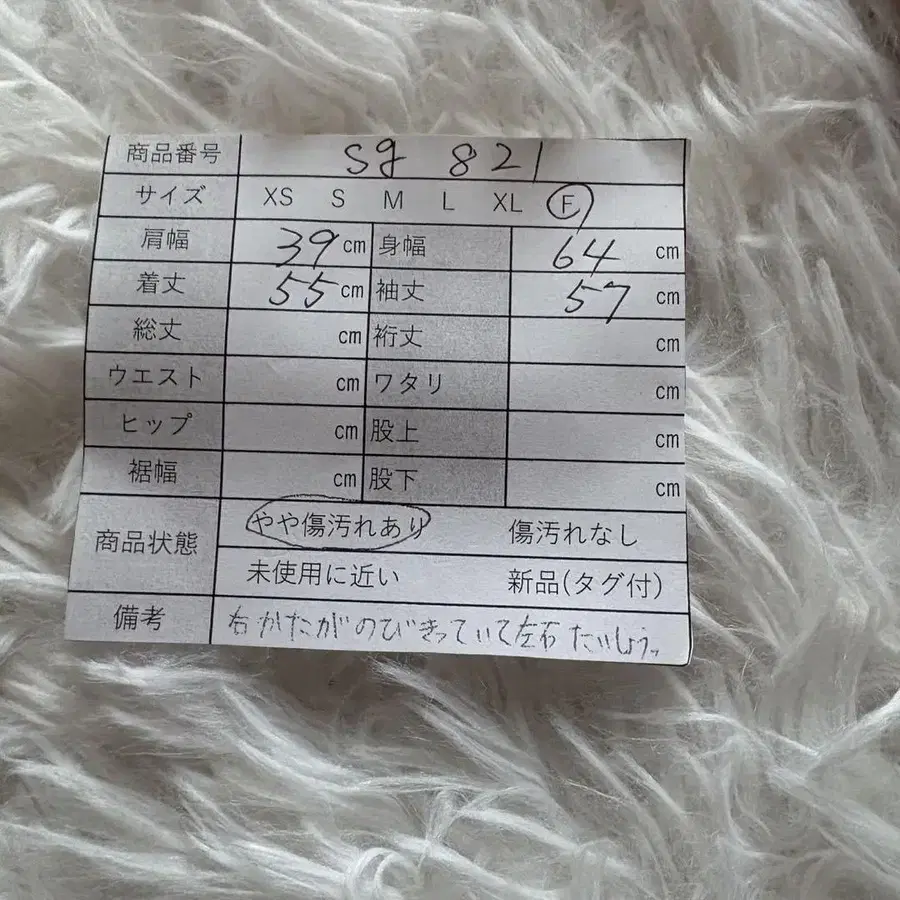 商品番号 sg 821
サイズ XS S M L XL F
肩幅 39 cm 身幅 64 cm
着丈 55 cm 袖丈 57 cm
総丈 cm 裄丈 cm
ウエスト cm ワタリ cm
ヒップ cm 股上 cm
裾幅 cm 股下 cm
商品状態 やや傷汚れあり 傷汚れなし
未使用に近い 新品(タグ付)
備考 右かたがのびきっていて左右たいしょう